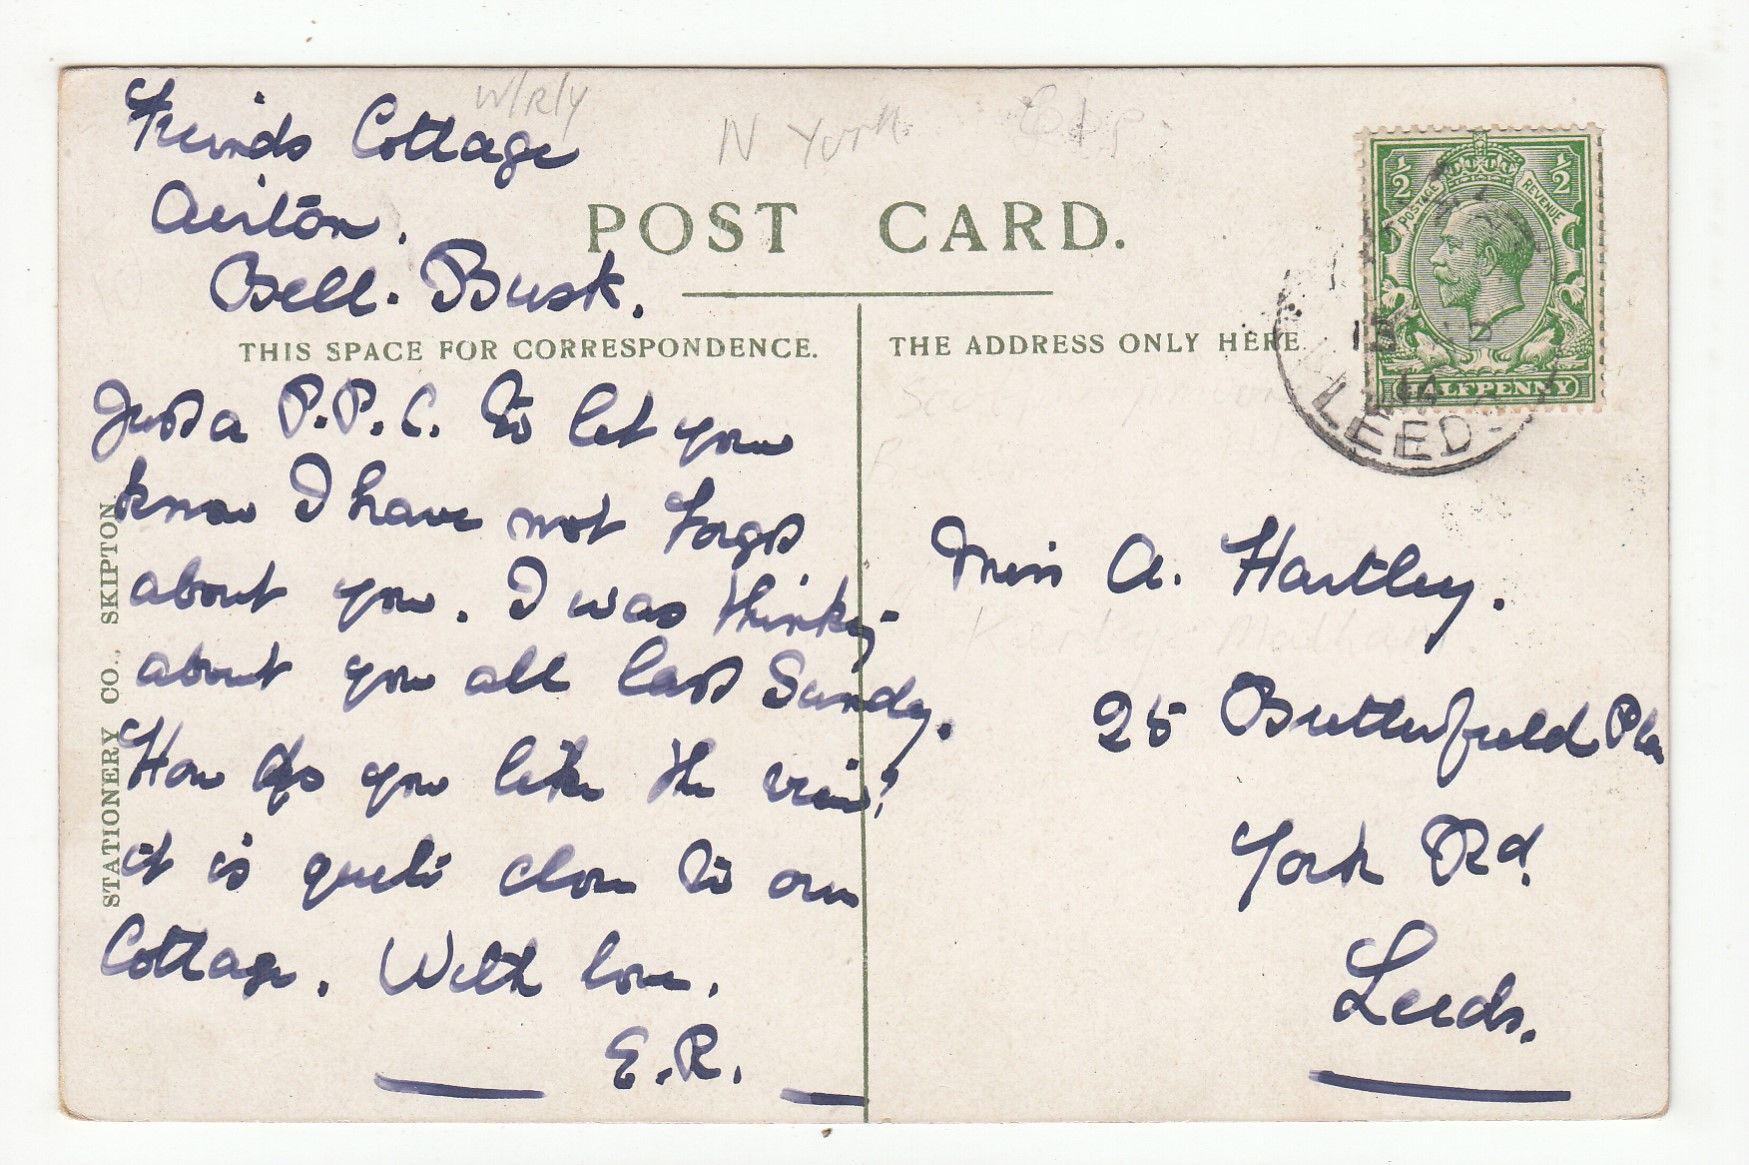 W/R/Y
N York
Friends Cottage
Airton.
Bell. Busk.
POST CARD.
THIS SPACE FOR CORRESPONDENCE.
THE ADDRESS ONLY HERE.
Just a P.P.C. to let you
know I have not forgot
about you. I was thinkg
about you all last Sunday.
How do you like the view?
it is quite close to our
Cottage. With love.
E.R.
Miss A. Hartley.
25 Butterfield Pla
York Rd.
Leeds.
STATIONERY CO., SKIPTON
½ ½
POSTAGE REVENUE
HALFPENNY
LEEDS
14